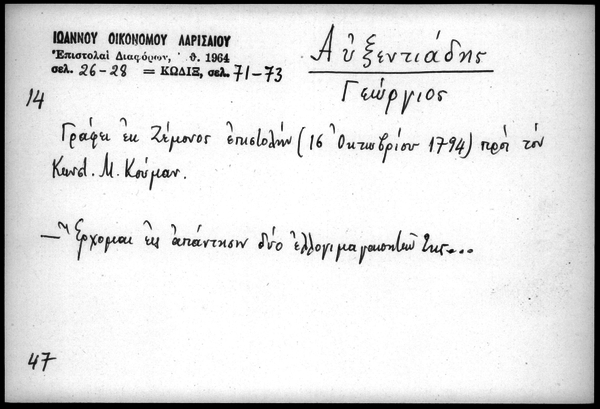 ΙΩΑΝΝΟΥ ΟΙΚΟΝΟΜΟΥ ΛΑΡΙΣΑΙΟΥ
Ἐπιστολαὶ Διαφόρων, ϑ. 1964
σελ. 26-28 = ΚΩΔΙΞ, σελ. 71-73
Αὐξεντιάδης
Γεώργιος
14
Γράφει ἐκ Ζέμονος ἐπιστολὴν (16 Ὀκτωβρίου 1794) πρὸς τὸν
Κωνστ. Μ. Κούμαν.
— Ἔρχομαι εἰς ἀπάντησιν δύο ἐλλογιμ
47